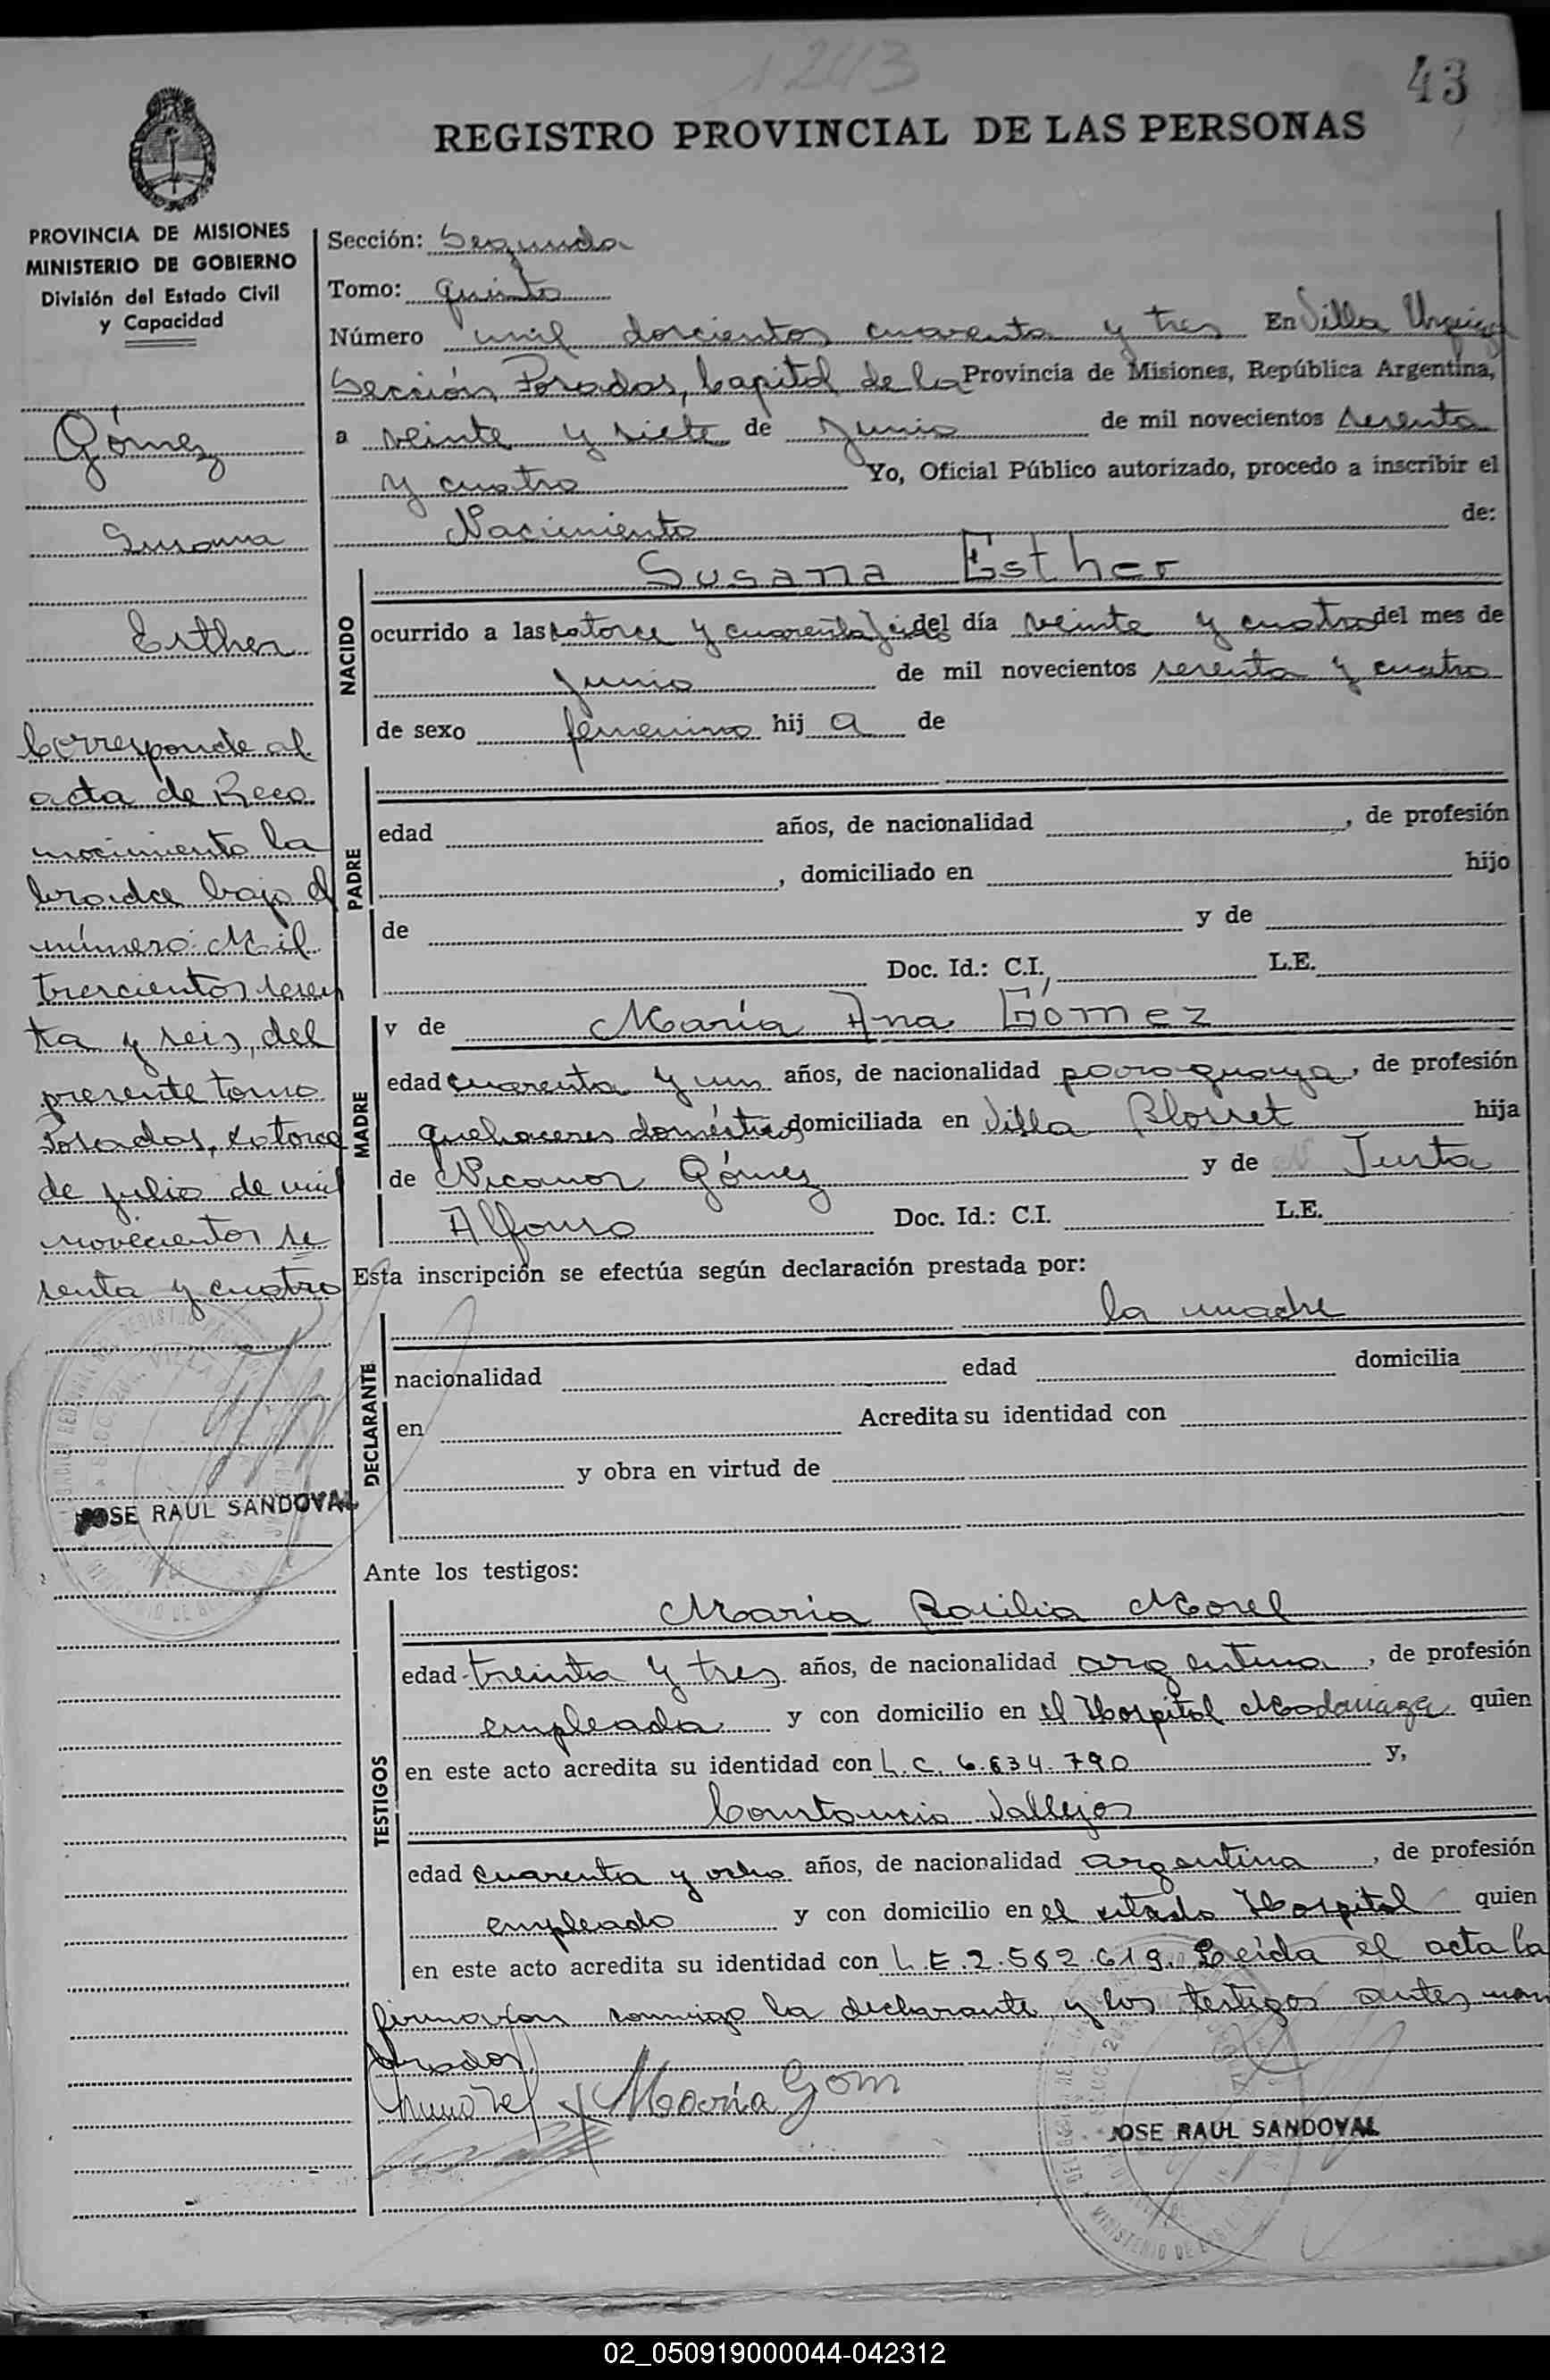 1243
43
REGISTRO PROVINCIAL DE LAS PERSONAS
PROVINCIA DE MISIONES
MINISTERIO DE GOBIERNO
División del Estado Civil
y Capacidad
Gómez
Susana
Esther
Corresponde al
acta de Reco
nocimiento la
brada bajo el
número: Mil
trescientos sesen
ta y seis, del
presente tomo
Posadas, catorce
de julio de mil
novecientos se
senta y cuatro
JOSE RAUL SANDOVAL
Sección: Segunda
Tomo: quinto
Número mil doscientos cuarenta y tres En Villa Urquiza
Sección Posadas, Capital de la Provincia de Misiones, República Argentina,
a veinte y siete de Junio de mil novecientos sesenta
y cuatro Yo, Oficial Público autorizado, procedo a inscribir el
Nacimiento de:
NACIDO
Susana Esther
ocurrido a las catorce y cuarenta del día veinte y cuatro del mes de
Junio de mil novecientos sesenta y cuatro
de sexo femenino hij a de
PADRE
edad años, de nacionalidad , de profesión
, domiciliado en hijo
de y de
Doc. Id.: C.I. L.E.
MADRE
y de María Ana Gómez
edad cuarenta y un años, de nacionalidad paraguaya, de profesión
quehaceres domésticos domiciliada en Villa Blosset hija
de Nicanor Gómez y de Justa
Alfonso Doc. Id.: C.I. L.E.
Esta inscripción se efectúa según declaración prestada por:
DECLARANTE
la madre
nacionalidad edad domicilia
en Acredita su identidad con
y obra en virtud de
Ante los testigos:
TESTIGOS
María Basilia Morel
edad treinta y tres años, de nacionalidad argentina, de profesión
empleada y con domicilio en el Hospital Madariaga quien
en este acto acredita su identidad con L.C. 6.634.790 y,
Constancio Vallejos
edad cuarenta y ocho años, de nacionalidad argentina, de profesión
empleado y con domicilio en el citado Hospital quien
en este acto acredita su identidad con L.E. 2.582.619. Leída el acta la
firmaron conmigo la declarante y los testigos antes nom
brados.
María Gom
JOSE RAUL SANDOVAL
02_050919000044-042312